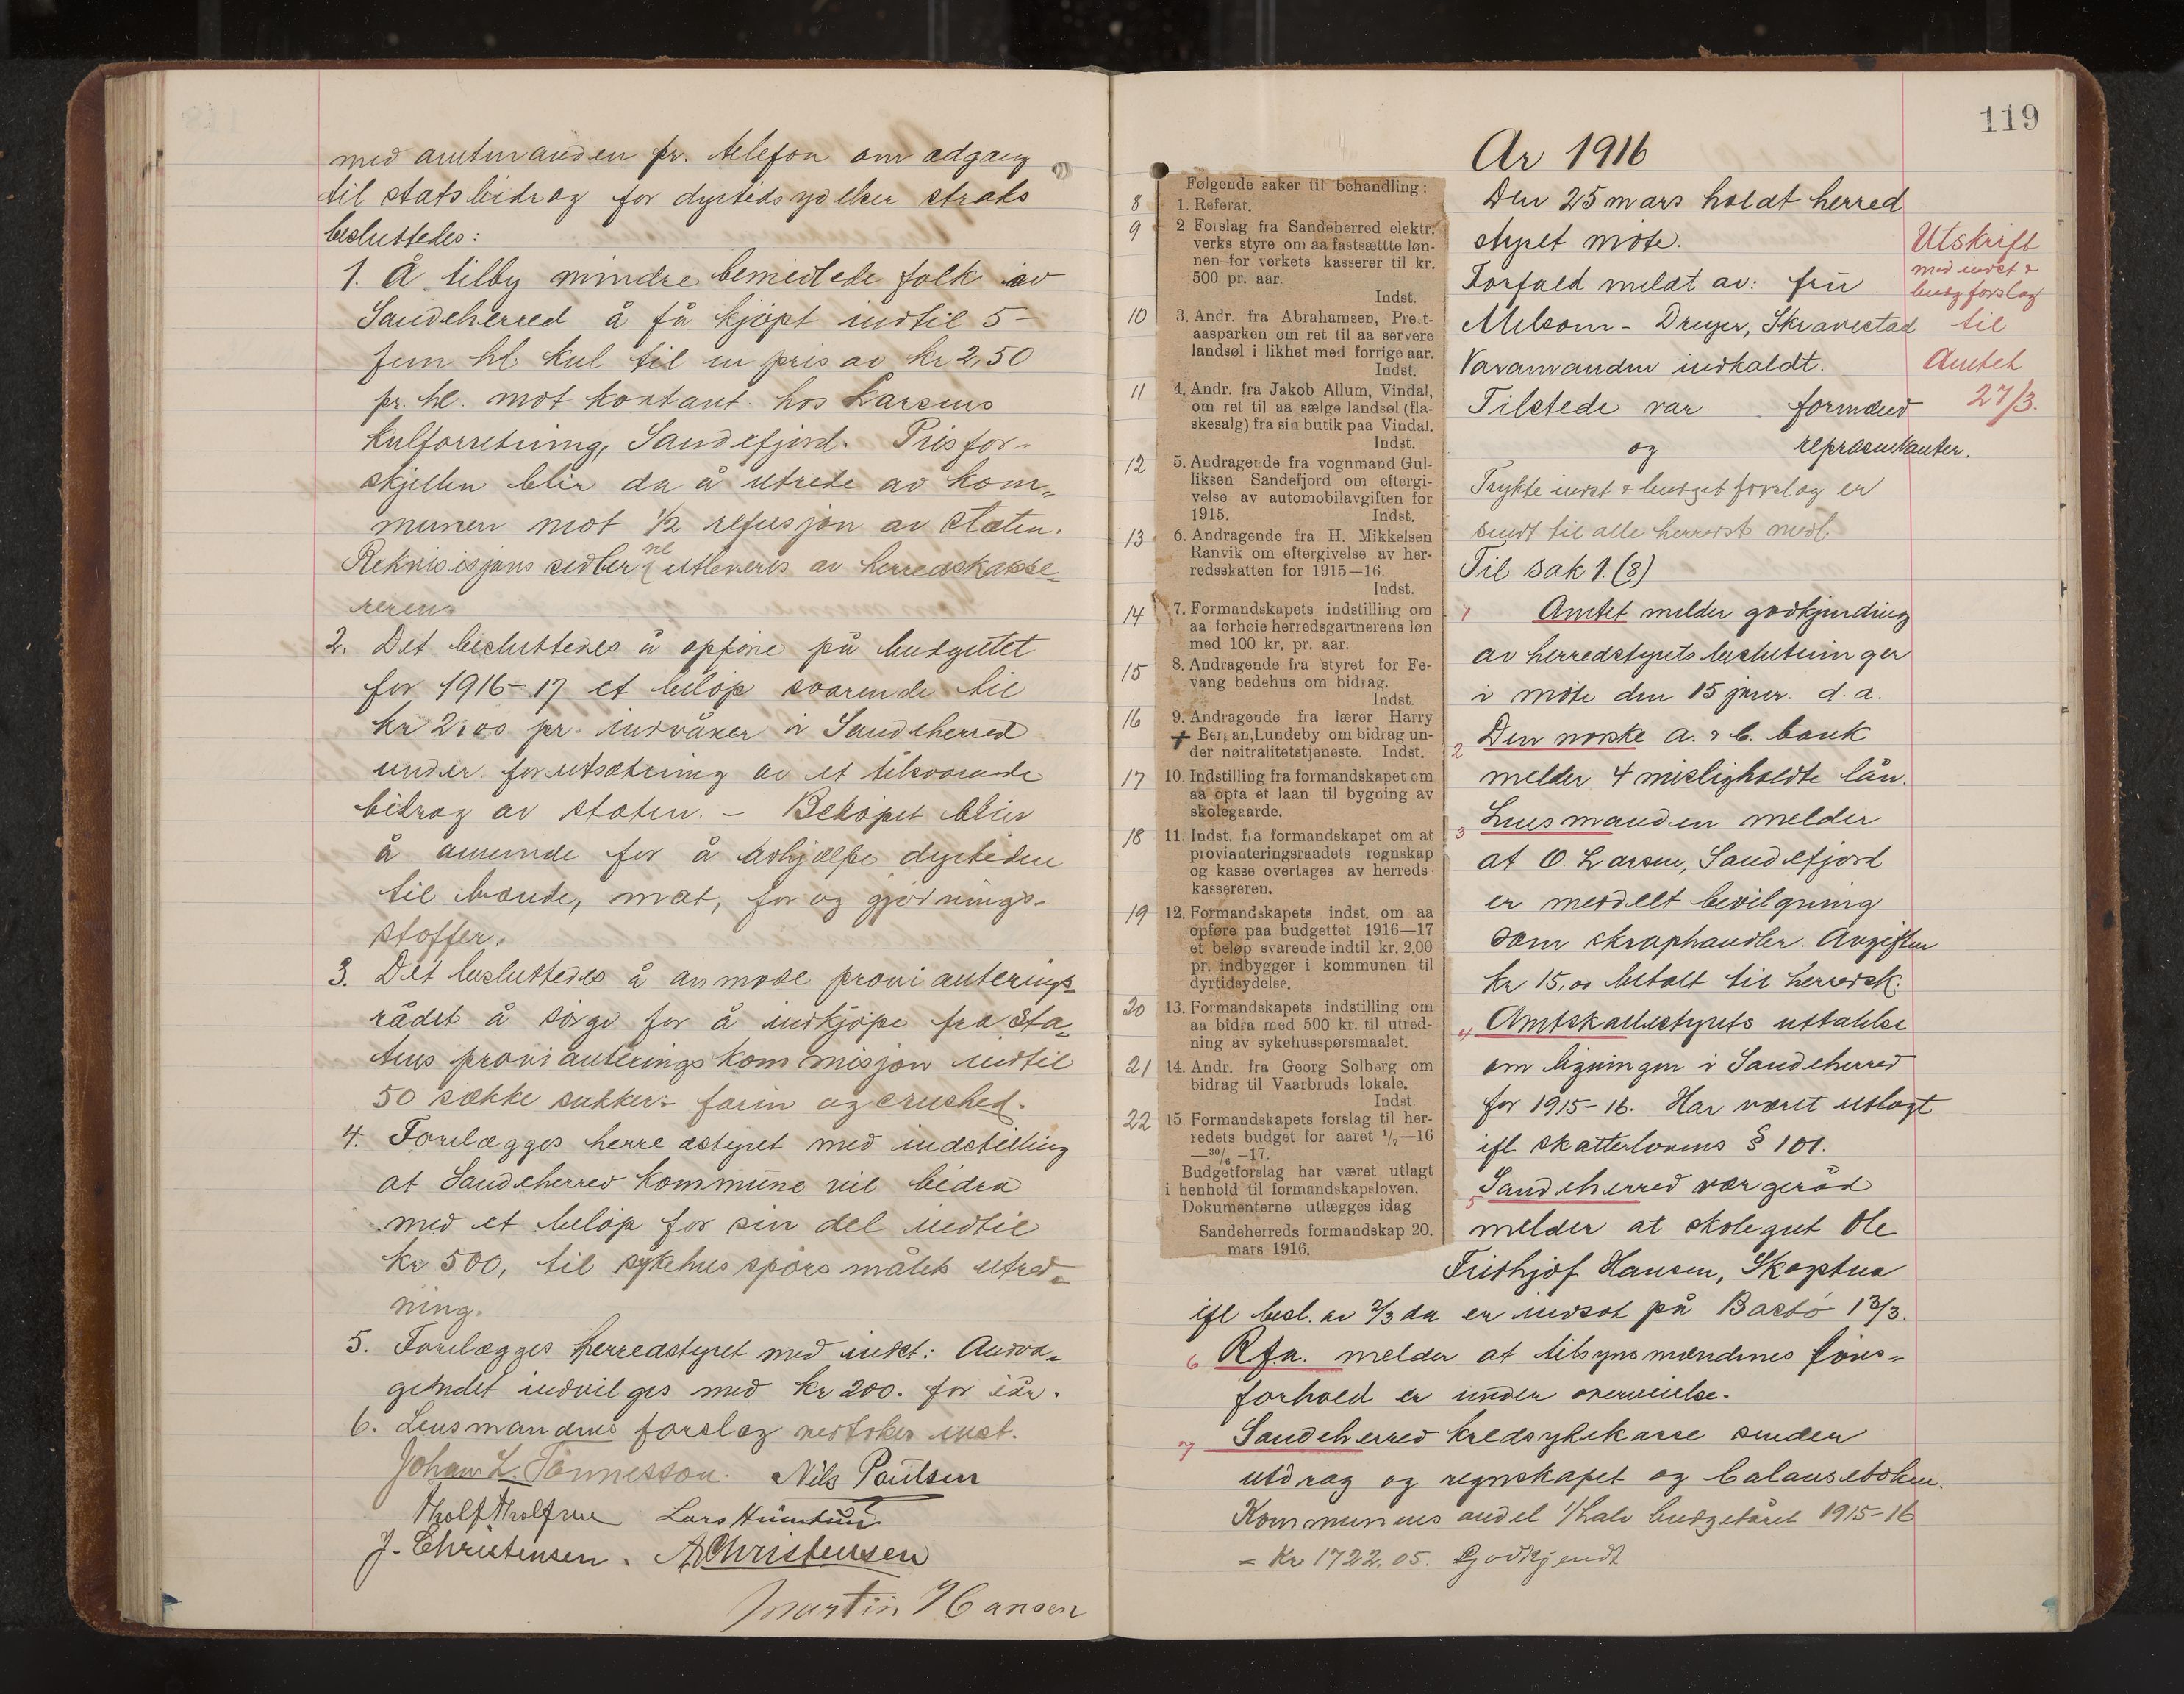 med amtmanden pr. telefon om adgang
til statsbidrag for dyrtidsydelser straks
besluttedes:
1. Å tilby mindre bemidlede folk av
Sandeherred å få kjöpt indtil 5-
fem hl kul til en pris av kr 2,50
pr. hl. mot kontant hos Larsens
kulforretning, Sandefjord. Prisfor-
skjellen blir da å utrede av kom-
munen mot 1/2 refusjon av staten.
Rekvisisjons sedler utleveres av herredskasse-
reren.
2. Det besluttedes å opföre på budgettet
for 1916-17 et belöp svarende til
kr 2,00 pr. indvåner i Sandeherred
under forutsætning av et tilsvarende
bidrag av staten. - Belöpet blir
å anvende for å avhjælpe dyrtiden
til brænde, mat, for og gjödnings-
stoffer.
3. Det besluttedes å anmode provianterings-
rådet å sörge for å indkjöpe fra Sta-
tens provianterings kommisjon indtil
50 sække sukker: farin og crushed.
4. Forelægges herredstyret med indstilling
at Sandeherred kommune vil bidra
med et belöp for sin del indtil
kr 500, til sykehus spörsmålets utred-
ning.
5. Forelægges herredstyret med indst: Andra-
gendet indvilges med kr 200. for iår.
6. Lensmandens forslag vedtokes enst.
Johan L. Tönnesson. Nils Paulsen
Tholf Tholfsen Lars
J. Christensen. A Christensen
Martin Hansen
119
År 1916
Følgende saker til behandling:
8 1. Referat.
9 2 Forslag fra Sandeherred elektr.
verks styre om aa fastsættte løn-
nen for verkets kasserer til kr.
500 pr. aar.
Indst.
10 3. Andr. fra Abrahamsen, Prest-
aasparken om ret til aa servere
landsøl i likhet med forrige aar.
Indst.
11 4. Andr. fra Jakob Allum, Vindal,
om ret til aa sælge landsøl (fla-
skesalg) fra sin butik paa Vindal.
Indst.
12 5. Andragende fra vognmand Gul-
liksen Sandefjord om eftergi-
velse av automobilavgiften for
1915. Indst.
13 6. Andragende fra H. Mikkelsen
Ranvik om eftergivelse av her-
redsskatten for 1915—16.
Indst.
14 7. Formandskapets indstilling om
aa forhøie herredsgartnerens løn
med 100 kr. pr. aar.
15 8. Andragende fra styret for Fe-
vang bedehus om bidrag.
Indst.
16 9. Andragende fra lærer Harry
+ Berjan, Lundeby om bidrag un-
der nøitralitetstjeneste. Indst.
17 10. Indstilling fra formandskapet om
aa opta et laan til bygning av
skolegaarde.
18 11. Indst. fra formandskapet om at
provianteringsraadets regnskap
og kasse overtages av herreds-
kassereren.
19 12. Formandskapets indst. om aa
opføre paa budgettet 1916—17
et beløp svarende indtil kr. 2,00
pr. indbygger i kommunen til
dyrtidsydelse.
20 13. Formandskapets indstilling om
aa bidra med 500 kr. til utred-
ning av sykehusspørsmaalet.
21 14. Andr. fra Georg Solberg om
bidrag til Vaarbruds lokale.
Indst.
22 15. Formandskapets forslag til her-
redets budget for aaret 1/7—16
—30/6 —17.
Budgetforslag har været utlagt
i henhold til formandskapsloven.
Dokumenterne utlægges idag
Sandeherreds formandskap 20.
mars 1916.
Den 25 mars holdt herred
styret möte.
Forfald meldt av: frü
Melsom - Dreyer, Skravestad
Varamanden indkaldt.
Tilstede var formænd
og repræsentanter.
Trykte indst & budget forslag er
sendt til alle herredst. medl.
Til sak 1. (8)
1 Amtet melder godkjending
av herredstyrets beslutninger
i möte den 15 janr. d.a.
2 Den norske a. & b. bank
melder 4 misligholdte lån.
3 Lensmanden melder
at O. Larsen, Sandefjord
er meddelt bevilgning
som skraphandler. Avgiften
kr 15,00 betalt til herredsk.
4 Amtskattestyrets uttalelse
om ligningen i Sandeherred
for 1915-16. Har været utlagt
ifl skattelovens § 101.
5 Sandeherred værgeråd
melder at skolegut Ole
Fridhjof Hansen, Skoptua
ifl besl. av 2/3 da er indsat på Bastö 13/3.
6 R.f.a. melder at tilsynsmændenes löns-
forhold er under overveielse.
7 Sandeherred kredsykekasse sender
utdrag og regnskapet og balanseboken.
Kommunens andel 1/halv budgetåret 1915-16
= kr 1722.05. Godkjendt
Utskrift
med indst &
budg forslag
til
Amtet
27/3.